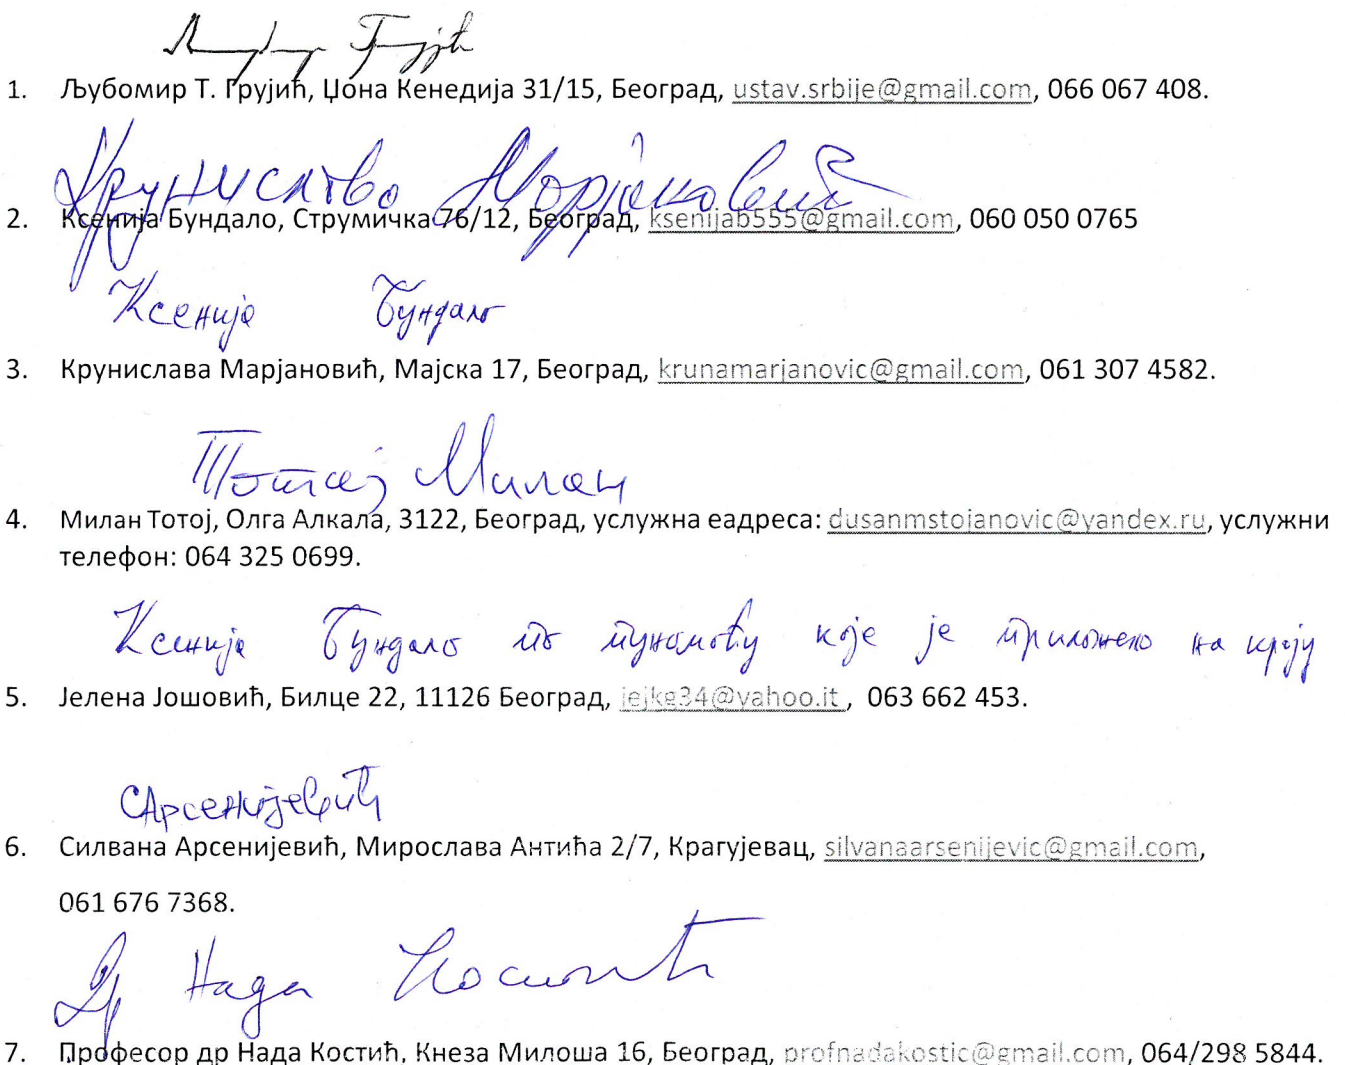 Љубомир Грујић
1. Љубомир Т. Грујић, Џона Кенедија 31/15, Београд, ustav.srbije@gmail.com, 066 067 408.
Крунислава Марјановић
2. Ксенија Бундало, Струмичка 76/12, Београд, ksenijab555@gmail.com, 060 050 0765
Ксенија Бундало
3. Крунислава Марјановић, Мајска 17, Београд, krunamarjanovic@gmail.com, 061 307 4582.
Тотој Милан
4. Милан Тотој, Олга Алкала, 3122, Београд, услужна еадреса: dusanmstojanovic@yandex.ru, услужни
телефон: 064 325 0699.
Ксенија Бундало по пуномоћу које је приложено на крају
5. Јелена Јошовић, Билце 22, 11126 Београд, jejkg34@yahoo.it , 063 662 453.
САрсенијевић
6. Силвана Арсенијевић, Мирослава Антића 2/7, Крагујевац, silvanaarsenijevic@gmail.com,
061 676 7368.
Др Нада Костић
7. Професор др Нада Костић, Кнеза Милоша 16, Београд, profnadakostic@gmail.com, 064/298 5844.